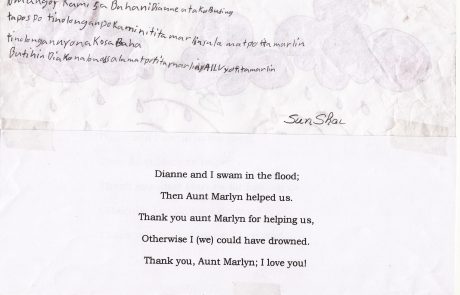 Kami sa Bahani Dianne at ako
tapos po tinolongan po Kami ni tita marlin salamat po tita marlin
tinolongan nyo na Ko sa Baha
salamat po tita marlin I LV yo tita marlin
Sun Shae
Dianne and I swam in the flood;
Then Aunt Marlyn helped us.
Thank you aunt Marlyn for helping us,
Otherwise I (we) could have drowned.
Thank you, Aunt Marlyn; I love you!